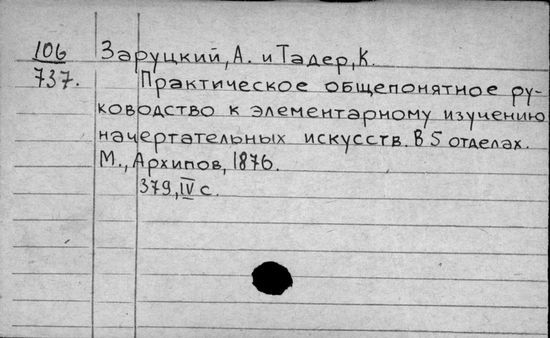 106 Заруцкий, А. и Тадер, К.
737. Практическое общепонятное ру-
ководство к элементарному изучению
начертательных искусств. В 5 отделах.
М., Архипов, 1876.
379, IV с.